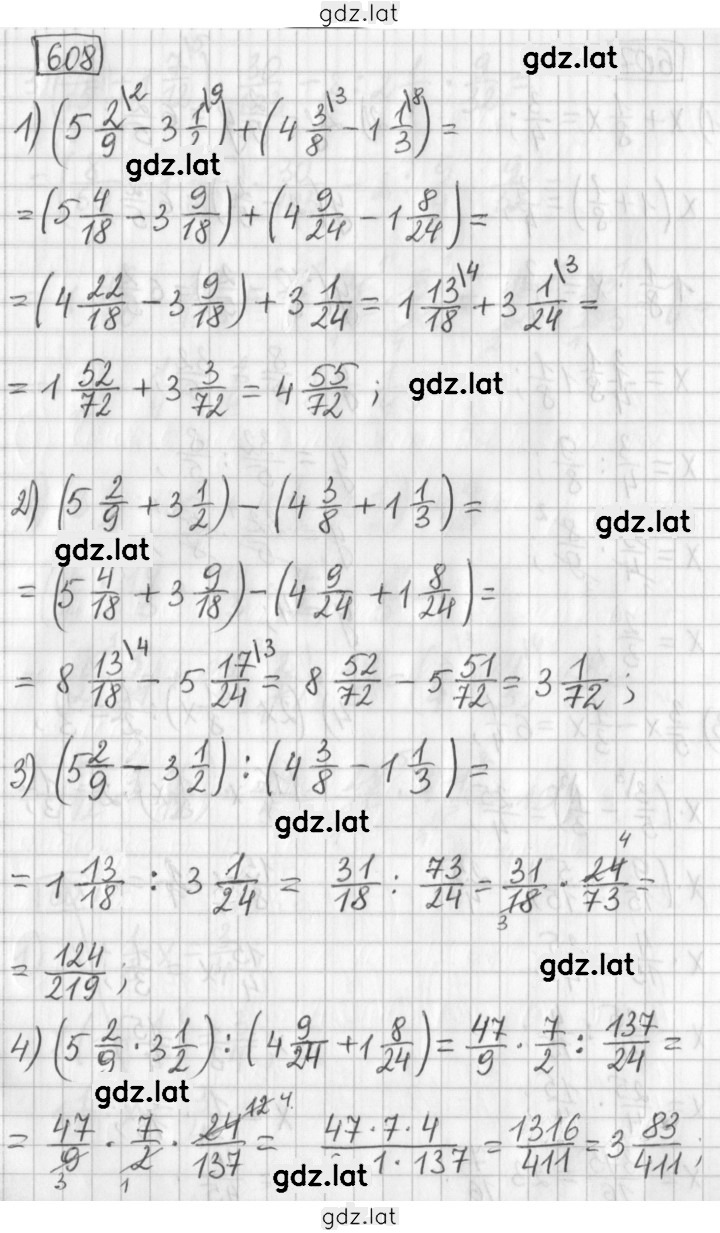 gdz.lat
608
gdz.lat
1) (5 2/9 \2 − 3 1/2 \9) + (4 3/8 \3 − 1 1/3 \8) =
gdz.lat
= (5 4/18 − 3 9/18) + (4 9/24 − 1 8/24) =
= (4 22/18 − 3 9/18) + 3 1/24 = 1 13/18 \4 + 3 1/24 \3 =
= 1 52/72 + 3 3/72 = 4 55/72 ;
gdz.lat
2) (5 2/9 + 3 1/2) − (4 3/8 + 1 1/3) =
gdz.lat
gdz.lat
= (5 4/18 + 3 9/18) − (4 9/24 + 1 8/24) =
= 8 13/18 \4 − 5 17/24 \3 = 8 52/72 − 5 51/72 = 3 1/72 ;
3) (5 2/9 − 3 1/2) : (4 3/8 − 1 1/3) =
gdz.lat
= 1 13/18 : 3 1/24 = 31/18 : 73/24 = 31/18 3 · 24 4/73 =
= 124/219 ;
gdz.lat
4) (5 2/9 · 3 1/2) : (4 9/24 + 1 8/24) = 47/9 · 7/2 : 137/24 =
gdz.lat
= 47/9 3 · 7/2 1 · 24 12 4/137 = 47 · 7 · 4/ 1 · 137 = 1316/411 = 3 83/411 ;
gdz.lat
gdz.lat